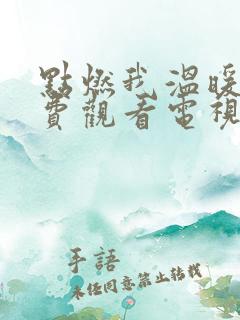 點燃我溫暖
費觀看電視
手語
未经同意禁止转载